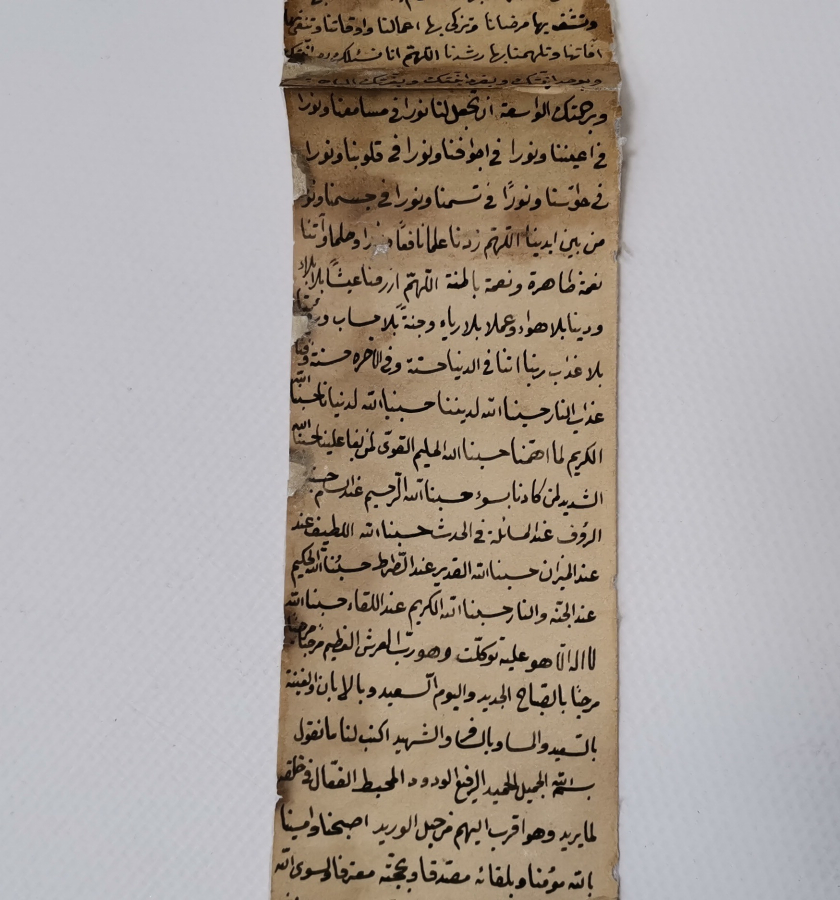 وتشفي بها مرضانا وتزكي بها اعمالنا واوقاتنا وتنقي بها
افاتنا وتلهمنا بها رشدنا اللهم انا نسئلك
وبرحمتك الواسعة ان تجعل لنا نورا في مسامعنا ونورا
في اعيننا ونورا في اجوافنا ونورا في قلوبنا ونورا
في حواسنا ونورًا في نسمنا ونورا في جسمنا ونو
من بين ايدينا اللهم زدنا علما نافعًا ونورا وحلما وآتنا
نعمة ظاهرة ونعمة باطنة اللهم ارزقنا عيشًا بلا بلاء
ودينا بلا هواء وعملا بلا رياء وجنةً بلا حساب
بلا عذاب ربنا اتنا في الدنيا حسنة وفي الاخره حسنة وقنا
عذاب النار حسبنا الله لديننا حسبنا الله لدنيانا حسبنا الله
الكريم لما اهمنا حسبنا الله الحليم القوى لمن بغا علينا حسبنا الله
الشديد لمن كادنا بسوء حسبنا الله الرحيم عند السام حسبنا
الرؤف عند المسائلة في الحدث حسبنا الله اللطيف عند
عند الميزان حسبنا الله القدير عند الصراط حسبنا الله الحكيم
عند الجنة والنار حسبنا الله الكريم عند اللقاء حسبنا الله
لا اله الا هو عليه توكلت وهو رب العرش العظيم مرحبا مرحبا
مرحبا بالصباح الجديد واليوم السعيد وبالابان والفينة
بالسعيد والمسا وبالسافر والشهيد اكتب لنا ما نقول
بسم الله الجميل الحميد الرفيع الودود المحيط الفعال في خلقه
لما يريد وهو اقرب اليهم من حبل الوريد اصبحنا وامسينا
بالله مؤمنا وبلقائه مصدقا وبحجته معترفا ولسوى الله